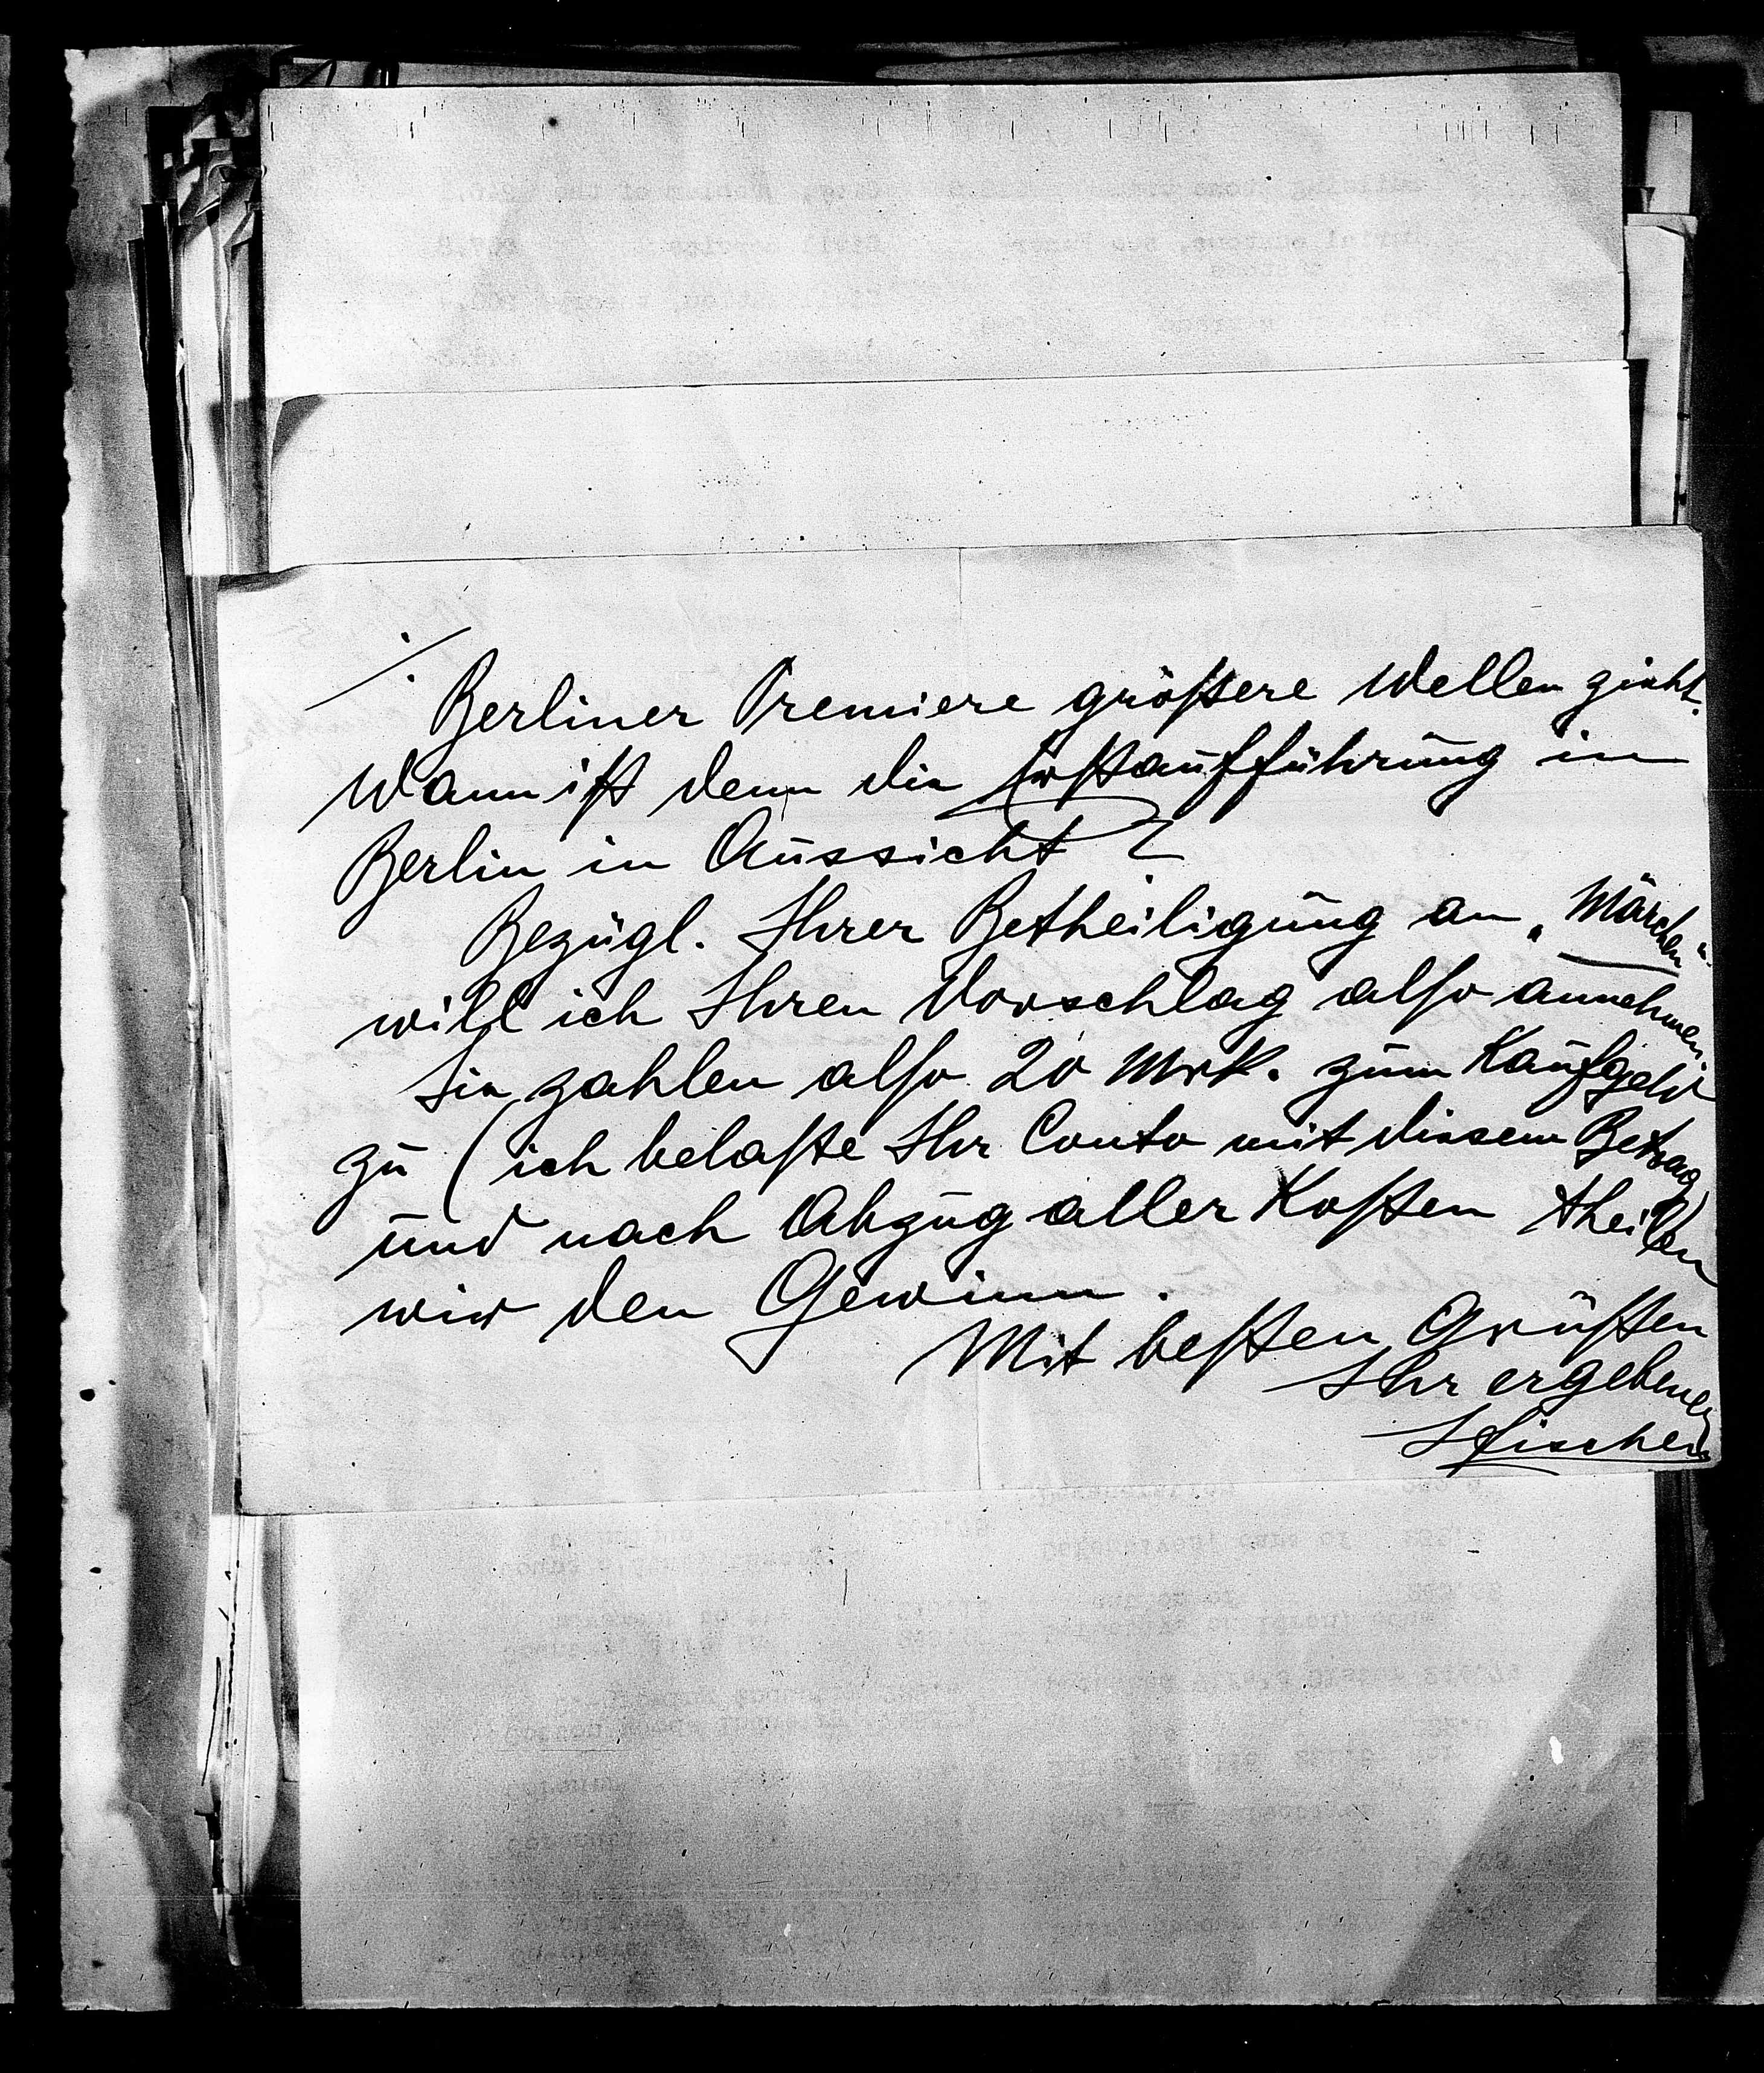 ./.
Berliner Premiere größere Wellen zieht.
Wann ist denn die Erstaufführung in
Berlin in Aussicht?
Bezügl. Ihrer Betheiligung an „Märchen“
will ich Ihren Vorschlag also annehmen.
Sie zahlen also 20 Mrk. zum Kaufgeld
zu (ich belaste Ihr Conto mit diesem Betrag)
und nach Abzug aller Kosten theilen
wir den Gewinn.
Mit besten Grüßen
Ihr ergebener
SFischer